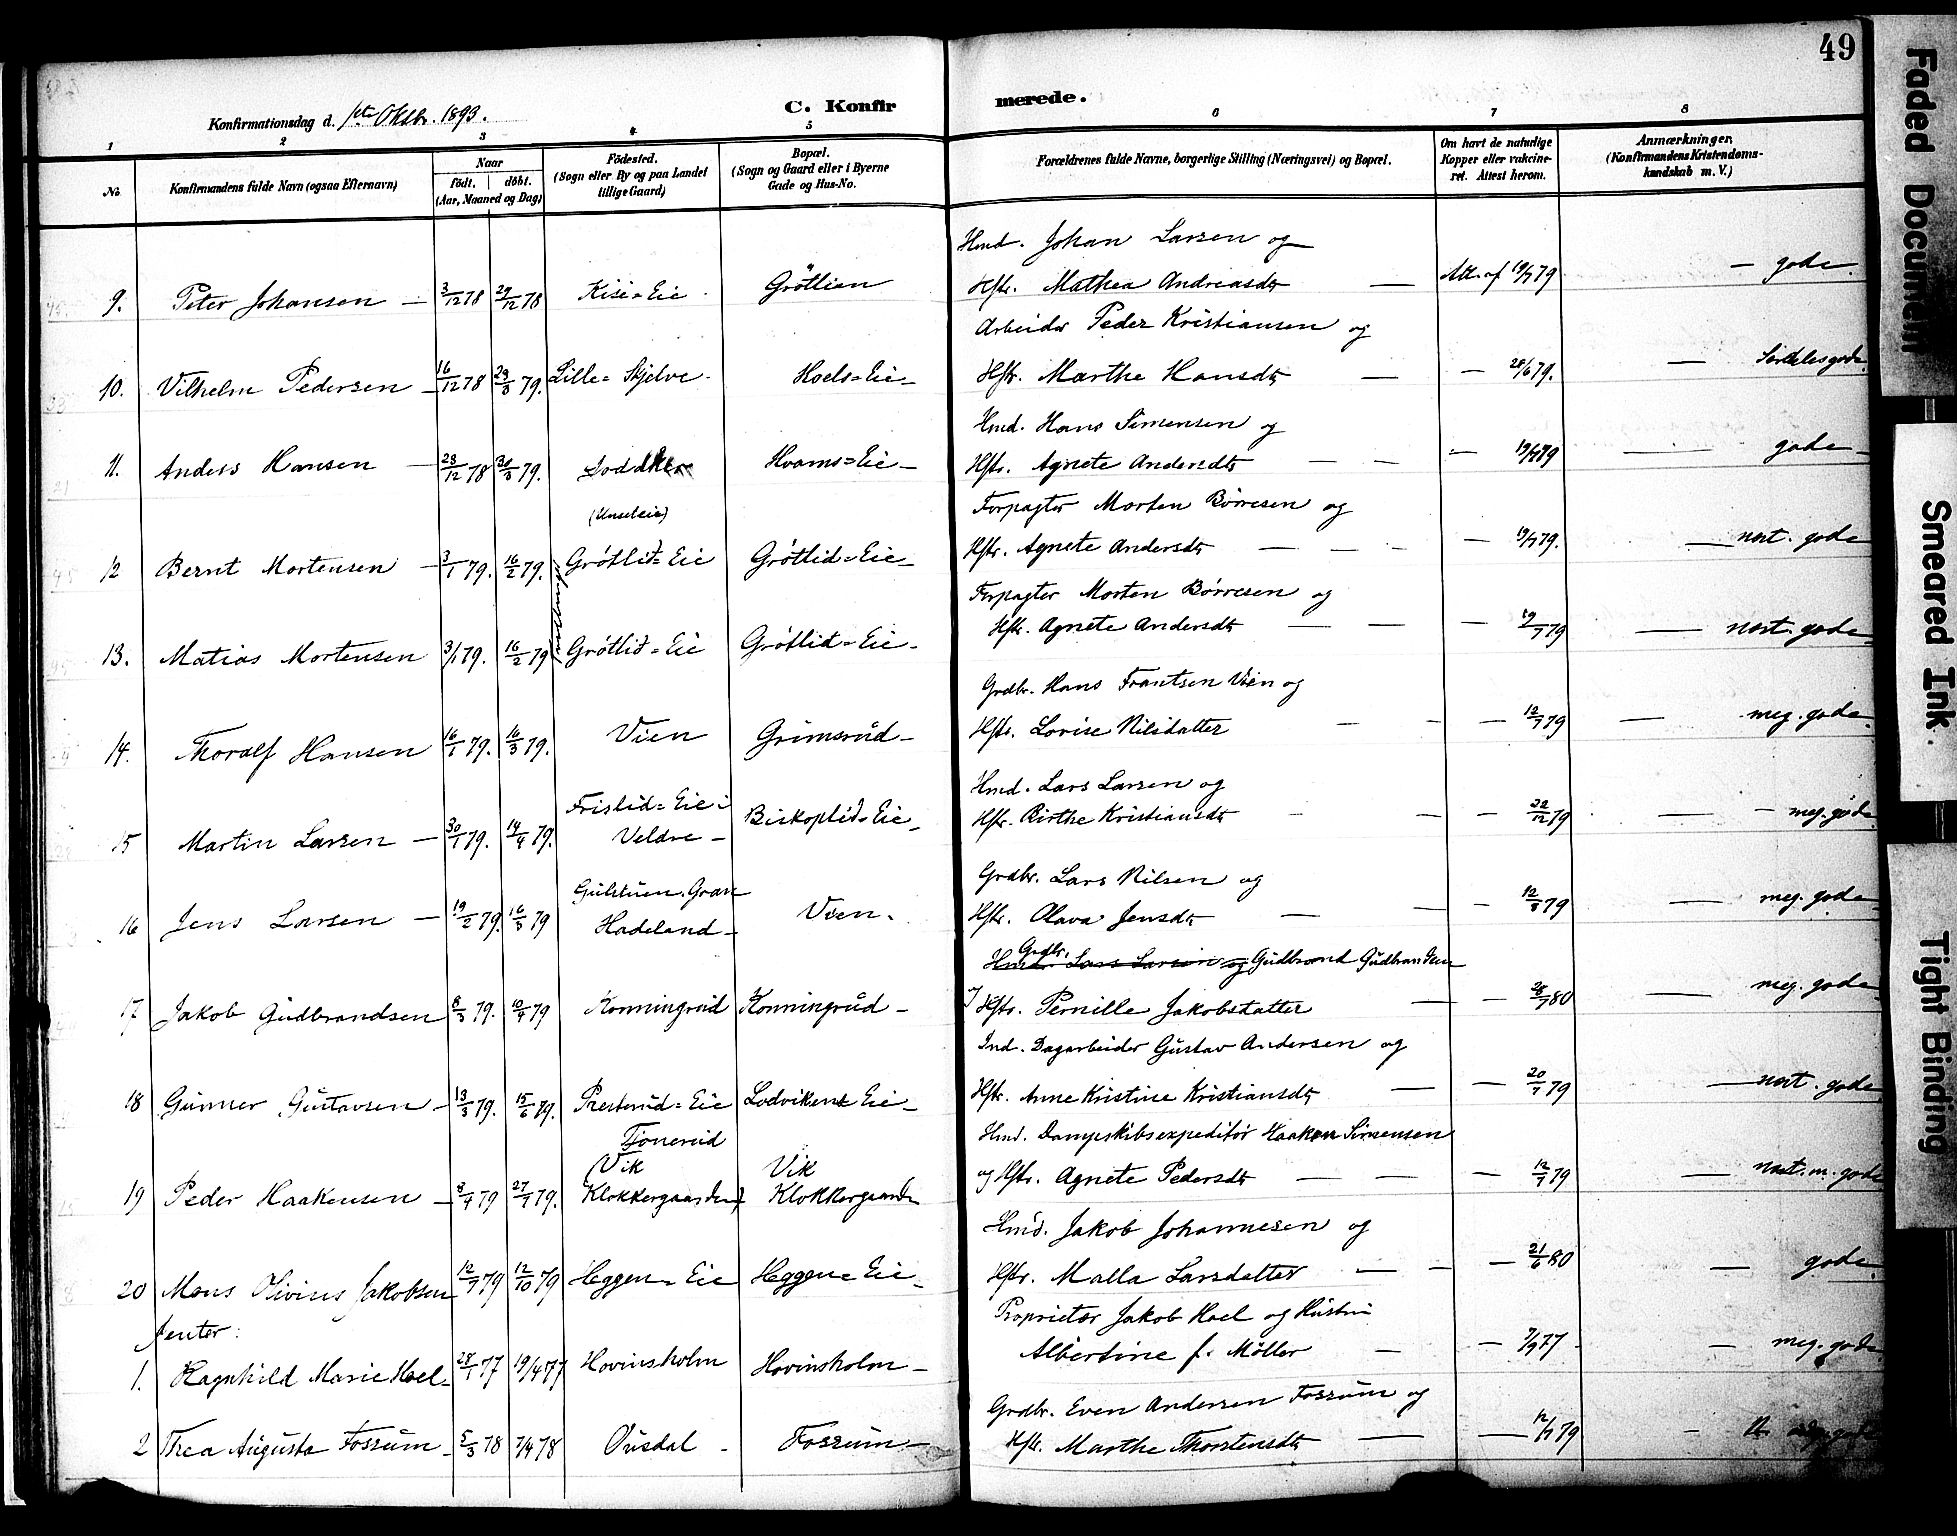 49
Konfirmationsdag d. 1ste Oktbr. 1893.
C. Konfirmerede.
1 2 3 4 5 6 7 8
No. Konfirmandens fulde Navn (ogsaa Efternavn) Naar födt. döbt. (Aar, Maaned og Dag) Födested. (Sogn eller By og paa Landet tillige Gaard) Bopæl. (Sogn og Gaard eller i Byerne Gade og Hus-No. Forældrenes fulde Navne, borgerlige Stilling (Næringsvei) og Bopæl. Om havt de naturlige Kopper eller vakcineret. Attest herom. Anmærkninger. (Konfirmandens Kristendomskundskab m. V.)
Hmd. Johan Larsen og
9. Peter Johansen – 3/12 78 29/12 78 Kise=Eie. Gröttlien Hstr. Mathea Andreasdtr — Att. af 19/7 79 – gode.
Arbeider Peder Kristiansen og
10. Vilhelm Pedersen – 16/12 78 23/3 79. Lille=Skjelve. Hoels=Eie – Hstr. Marthe Hansdtr — – 28/6 79. — Særdeles gode.
Hmd. Hans Simensen og
11. Anders Hansen – 23/12 78 30/3 79. Hvams=Eie – Hstr. Agnete Andersdtr — — – 19/7 79 — gode –
Forpagter Morten Börresen og
12 Bernt Mortensen – 3/1 79. 16/2 79. Gröttlid=Eie Gröttlid=Eie – Hstr. Agnete Andersdtr — – – – 19/7 79. — næst. gode
Forpagter Morten Börresen og
13. Matias Mortensen 3/1 79. 16/2 79 (Tvillinger) Gröttlid=Eie Gröttlid=Eie – Hstr. Agnete Andersdtr — — – 19/7 79 — næst. gode
Grdbr. Hans Frantsen Vien og
14. Thoralf Hansen 16/1 79. 16/3 79. Vien Grimsrud – Hstr. Lovise Nilsdatter — – – 12/7 79 — meg. gode
Hmd. Lars Larsen og
Fristid=Eie i
15 Martin Larsen – 30/1 79. 14/4 79. Veldre – Biskoplid=Eie – Hstr. Birthe Kristiansdtr – – – 22/12 79 – meg. gode
Grdbr. Lars Nilsen og
Gulstuen. Gran
16 Jens Larsen – 19/2 79. 16/3 79 Hadeland – Vien. Hstr. Olava Jensdtr — – – 12/8 79 — meg. gode
Grdbr.
Hmd. Lars Larsen og Gudbrand Gudbrandsen
17 Jakob Gudbrandsen 8/3 79. 10/4 79 Konningrud Konningrud – Hstr. Pernille Jakobsdatter — – 28/7 80 — meg. gode
Ind. Dagarbeider Gustav Andersen og
18 Gunner Gustavsen – 13/3 79. 15/6 79. Presterud=Eie Lodvikens Eie – Hstr. Anne Kristine Kristiansdtr — – 20/7 79 — næst. gode
Tjonerud
Hmd. Dampskibsexpeditör Haaken Simensen
(Vik Vik
19 Peder Haakensen – 8/4 79 27/4 79. Klokkergaarden) Klokkergaarden og Hstr. Agnete Pedersdtr — — – 12/7 79 — næst. m. gode
Hmd. Jakob Johannesen og
20 Mons Olivius Jakobsen 12/7 79 12/10 79 Heggen=Eie Heggen=Eie – Hstr. Malla Larsdatter — – – 21/6 80 — gode
Jenter:
Proprietær Jakob Hoel og Hustru
1. Ragnhild Marie Hoel – 28/1 77 19/4 77 Hovinsholm Hovinsholm – Albertine f. Möller – – 7/9 77 – meg. gode
Grdbr. Even Andersen Fossum og
2 Thea Augusta Fossum – 5/3 78 7/4 78 Ousdal – Fossum – Hstr. Marthe Thorstensdtr — — 12/7 79 – gode
Faded Document
Smeared Ink.
Tight Binding